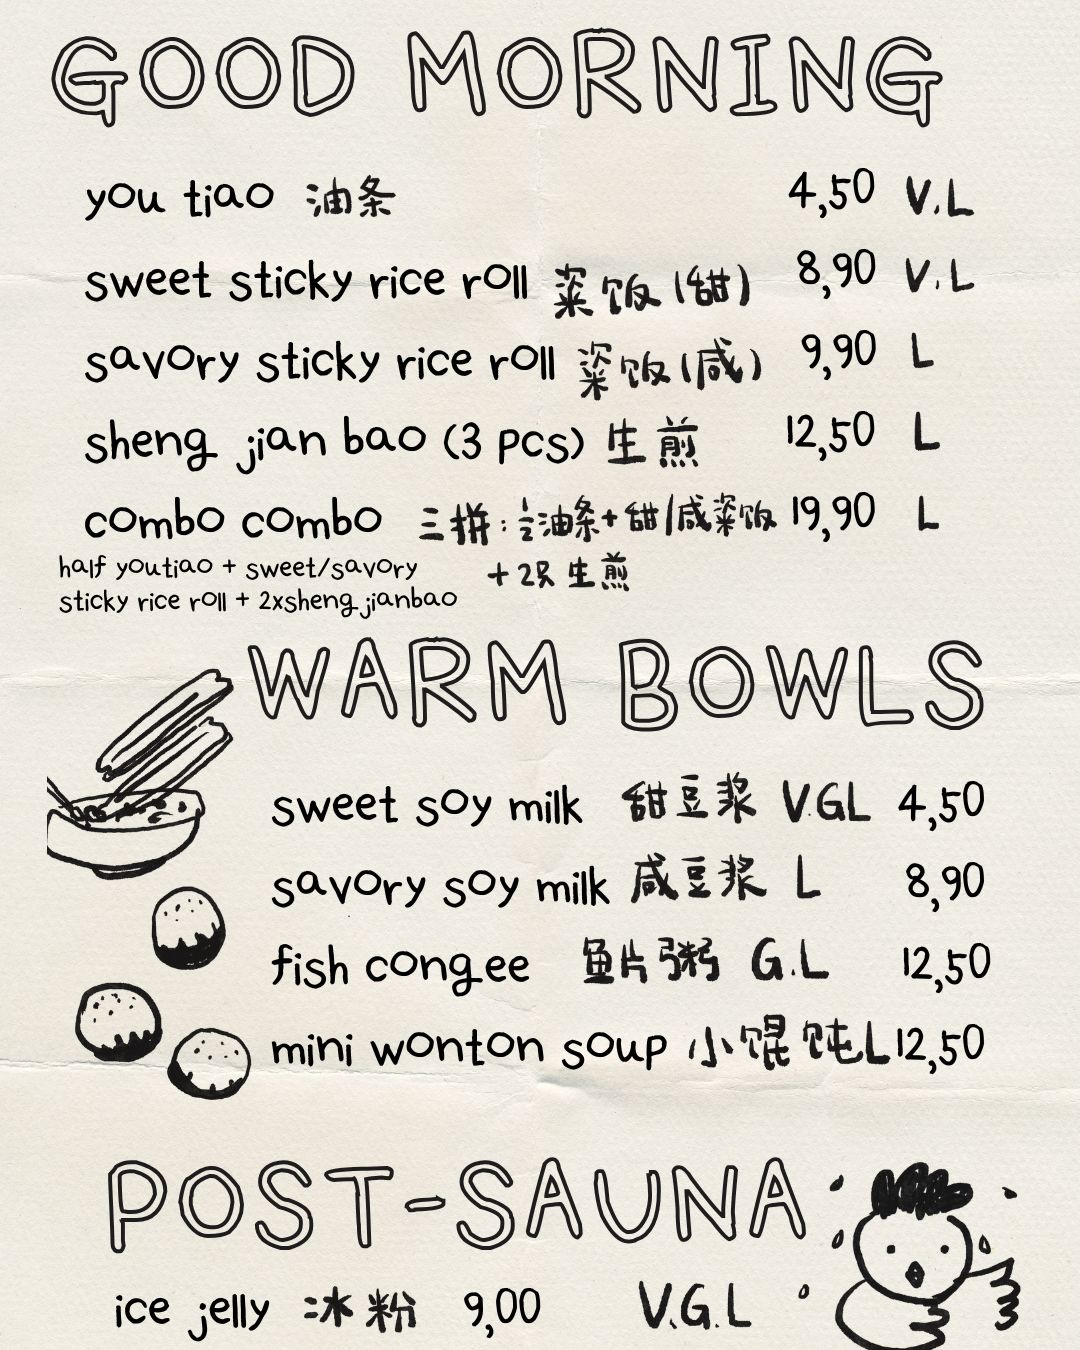 GOOD MORNING
you tiao 油条 4,50 V.L
sweet sticky rice roll 粢饭(甜) 8,90 V.L
savory sticky rice roll 粢饭(咸) 9,90 L
sheng jian bao (3 pcs) 生煎 12,50 L
combo combo 三拼:½油条+甜/咸粢饭 19,90 L
half youtiao + sweet/savory +2只生煎
sticky rice roll + 2xsheng jianbao
WARM BOWLS
sweet soy milk 甜豆浆 V.GL 4,50
savory soy milk 咸豆浆 L 8,90
fish congee 鱼片粥 G.L 12,50
mini wonton soup 小馄饨 L 12,50
POST-SAUNA
ice jelly 冰粉 9,00 V.G.L